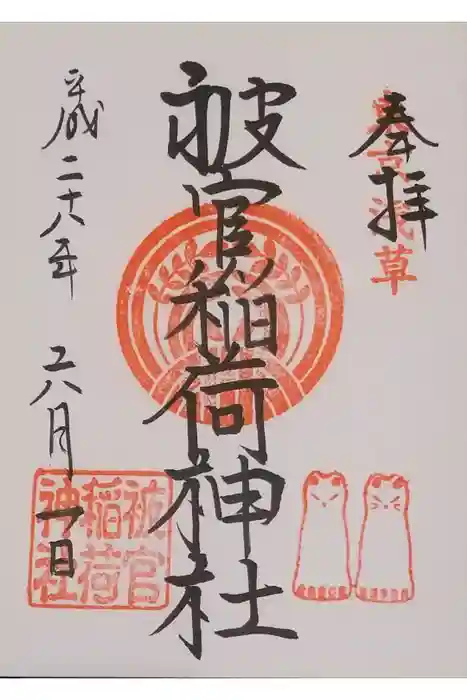 奉拝
東京浅草
被官稲荷神社
平成二十八年 六月 一日
被官
稲荷
神社